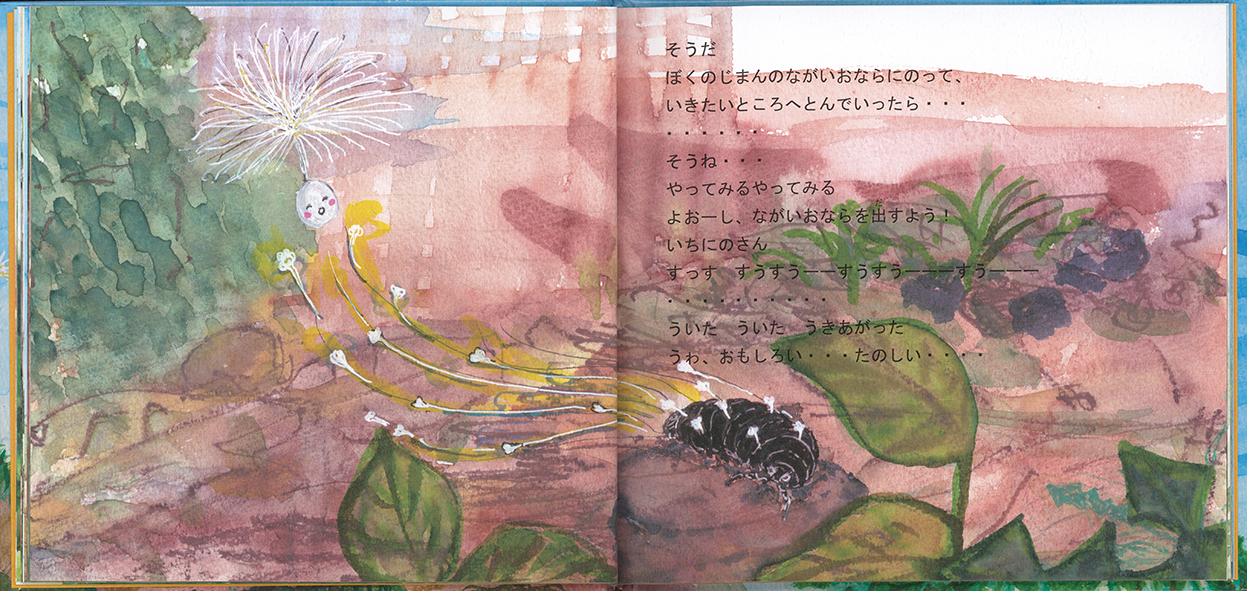 そうだ
ぼくのじまんのながいおならにのって、
いきたいところへとんでいったら・・・
・・・・・・
そうね・・・
やってみるやってみる
よおーし、ながいおならを出すよう！
いちにのさん
すっす　すうすうーーすうすうーーーすうーーー
・・・・・・・・・・
ういた　ういた　うきあがった
うわ、おもしろい・・・たのしい・・・・